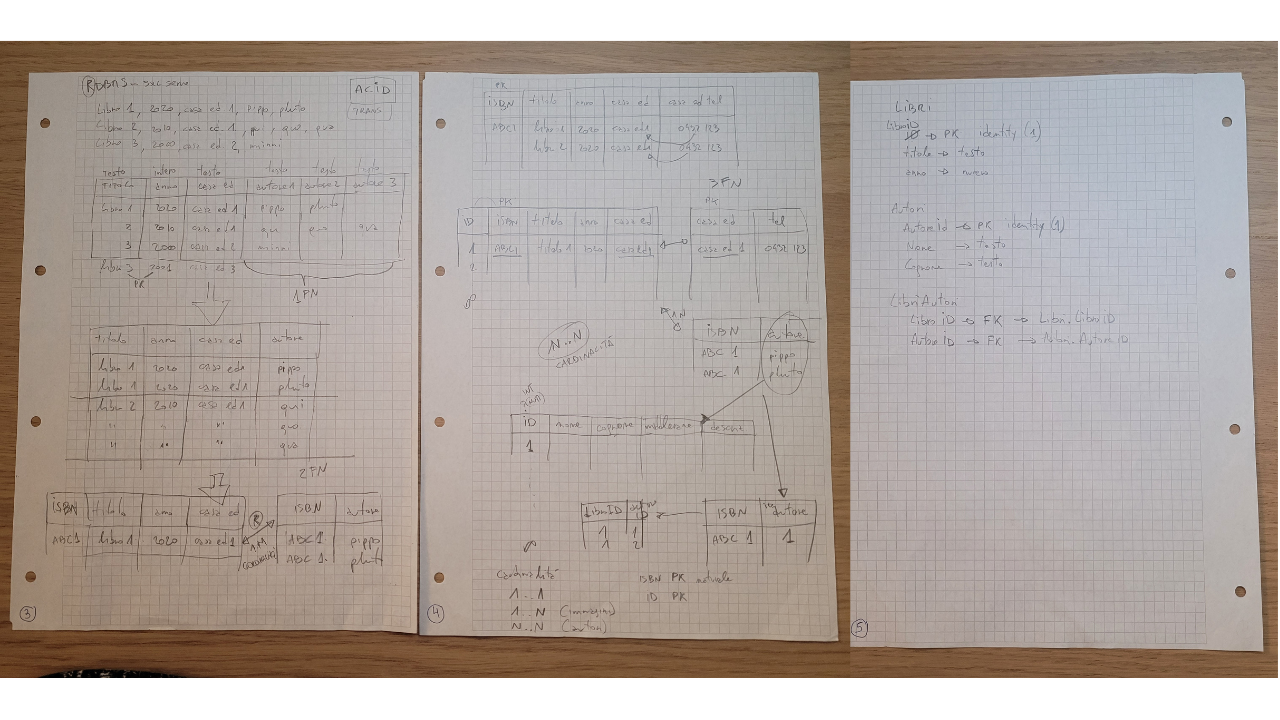 RDBMS
ACID
TRANS
Libro 1, 2020, casa ed 1, pippo, pluto
Libro 2, 2010, casa ed 1, qui, quo, qua
Libro 3, 2000, casa ed 2, minni
testo intero testo testo testo testo
titolo anno casa ed autore 1 autore 2 autore 3
libro 1 2020 casa ed 1 pippo pluto
2 2010 casa ed 1 qui quo qua
3 2000 casa ed 2 minni
libro 3 2001 casa ed 3
PK
1FN
titolo anno casa ed autore
libro 1 2020 casa ed 1 pippo
libro 1 2020 casa ed 1 pluto
libro 2 2010 casa ed 1 qui
" " " quo
" " " qua
2FN
ISBN titolo anno casa ed
ABC1 libro 1 2020 casa ed 1
R
ISBN autore
ABC 1 pippo
ABC 1 pluto
3
PK
ISBN titolo anno casa ed casa ed tel
ABC1 libro 1 2020 casa ed 1 0432 123
libro 2 2020 casa ed 1 0432 123
3FN
PK
ID ISBN titolo anno casa ed
1 ABC1 titolo 1 2020 casa ed 1
2
PK
casa ed tel
casa ed 1 0432 123
1 N
N..N
CARDINALITÀ
ISBN autore
ABC 1 pippo
ABC 1 pluto
ID nome cognome
1
LibroID autore ID
1 1
1 2
ISBN autore
ABC 1 1
Cardinalità
1..1
1..N (immagini)
N..N (autori)
ISBN PK naturale
ID PK
4
LIBRI
LibroID → PK identity (1)
titolo → testo
anno → numero
Autori
Autore id → PK identity (1)
Nome → testo
Cognome → testo
LibriAutori
Libro ID → FK → Libri.LibroID
Autore ID → FK → Autori.AutoreID
5